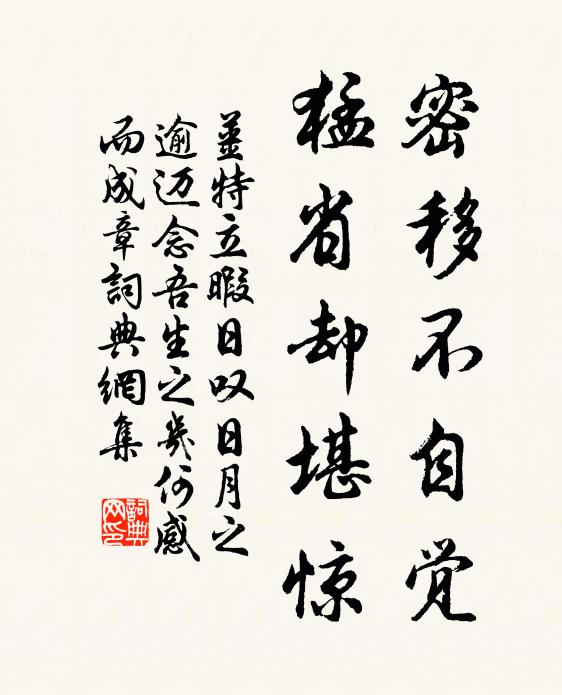 密移不自觉
猛省却堪惊
薑特立暇日叹日月之
逾迈念吾生之幾何感
而成章詞典網集
詞典网印